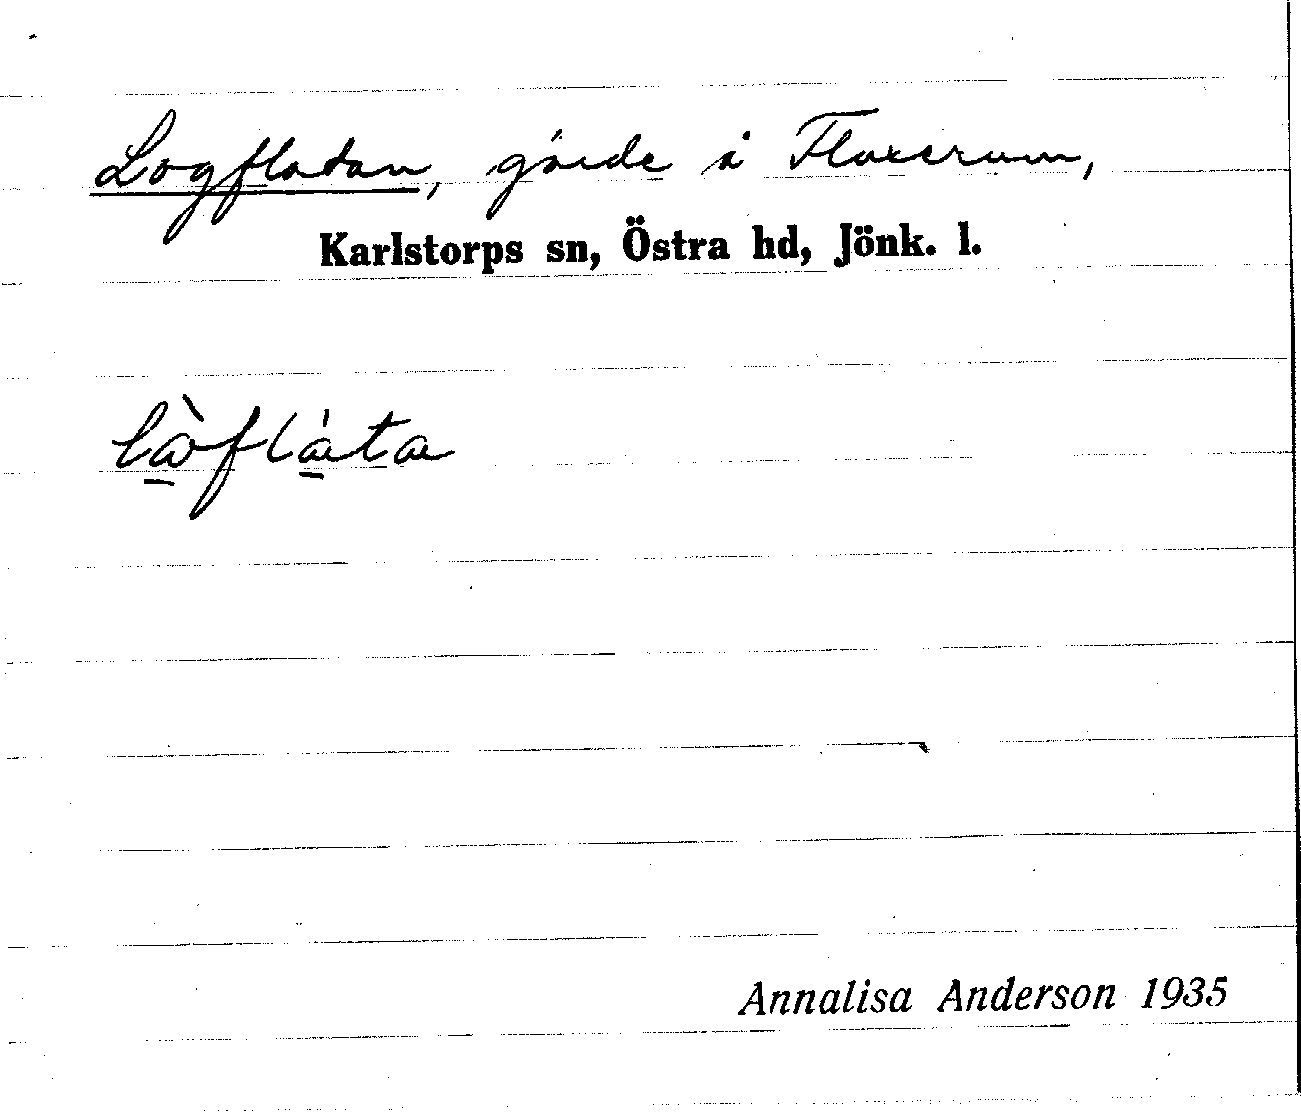 Logflatan, gärde i Flaxerum,
Karlstorps sn, Östra hd, Jönk. l.
Annalisa Anderson 1935